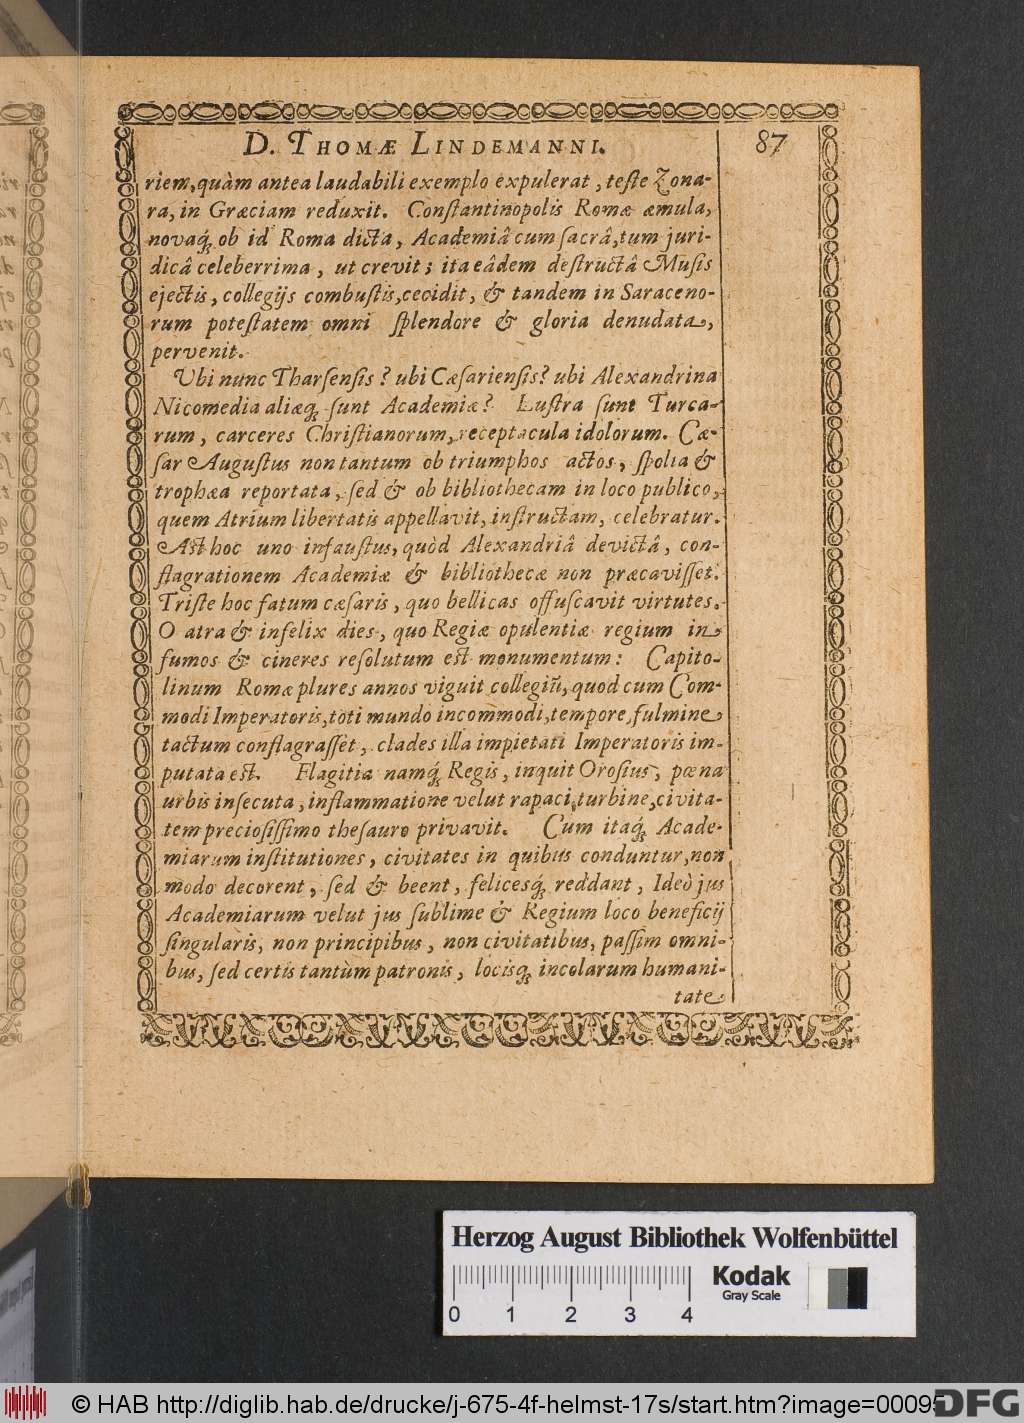 D. THOMÆ LINDEMANNI. 87
riem, quàm antea laudabili exemplo expulerat, teſte Zona-
ra, in Græciam reduxit. Conſtantinopolis Romæ æmula,
novaq́; ob id Roma dicta, Academiâ cum ſacrâ, tum juri-
dicâ celeberrima, ut crevit; ita eâdem deſtructâ Muſis
ejectis, collegijs combuſtis, cecidit, & tandem in Saraceno-
rum poteſtatem omni ſplendore & gloria denudata,
pervenit.
Ubi nunc Tharſenſis? ubi Cæſarienſis? ubi Alexandrina
Nicomedia aliæq́; ſunt Academiæ? Luſtra ſunt Turca-
rum, carceres Chriſtianorum, receptacula idolorum. Cæ-
ſar Auguſtus non tantum ob triumphos actos, ſpolia &
trophæa reportata, ſed & ob bibliothecam in loco publico,
quem Atrium libertatis appellavit, inſtructam, celebratur.
Aſt hoc uno infauſtus, quòd Alexandriâ devictâ, con-
flagrationem Academiæ & bibliothecæ non præcaviſſet.
Triſte hoc fatum cæſaris, quo bellicas offuſcavit virtutes.
O atra & infelix dies, quo Regiæ opulentiæ regium in
fumos & cineres reſolutum eſt monumentum: Capito-
linum Romæ plures annos viguit collegiũ, quod cum Com-
modi Imperatoris, toti mundo incommodi, tempore, fulmine
tactum conflagraſſet, clades illa impietati Imperatoris im-
putata eſt. Flagitia namq́; Regis, inquit Oroſius, pœna
urbis inſecuta, inflammatione velut rapaci turbine, civita-
tem precioſiſſimo theſauro privavit. Cum itaq́; Acade-
miarum inſtitutiones, civitates in quibus conduntur, non
modo decorent, ſed & beent, felicesq́; reddant, Ideò jus
Academiarum velut jus ſublime & Regium loco beneficij
ſingularis, non principibus, non civitatibus, paſſim omni-
bus, ſed certis tantùm patronis, locisq́; incolarum humani-
tate
Herzog August Bibliothek Wolfenbüttel
Kodak
Gray Scale
0 1 2 3 4
© HAB http://diglib.hab.de/drucke/j-675-4f-helmst-17s/start.htm?image=00095
DFG